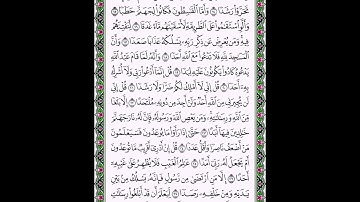 تَحَرَّوْا۟ رَشَدًا ۝ وَأَمَّا ٱلْقَٰسِطُونَ فَكَانُوا۟ لِجَهَنَّمَ حَطَبًا ۝
وَأَلَّوِ ٱسْتَقَٰمُوا۟ عَلَى ٱلطَّرِيقَةِ لَأَسْقَيْنَٰهُم مَّآءً غَدَقًا ۝ لِّنَفْتِنَهُمْ
فِيهِ وَمَن يُعْرِضْ عَن ذِكْرِ رَبِّهِۦ يَسْلُكْهُ عَذَابًا صَعَدًا ۝ وَأَنَّ
ٱلْمَسَٰجِدَ لِلَّهِ فَلَا تَدْعُوا۟ مَعَ ٱللَّهِ أَحَدًا ۝ وَأَنَّهُۥ لَمَّا قَامَ عَبْدُ ٱللَّهِ
يَدْعُوهُ كَادُوا۟ يَكُونُونَ عَلَيْهِ لِبَدًا ۝ قُلْ إِنَّمَآ أَدْعُوا۟ رَبِّى وَلَآ أُشْرِكُ
بِهِۦٓ أَحَدًا ۝ قُلْ إِنِّى لَآ أَمْلِكُ لَكُمْ ضَرًّا وَلَا رَشَدًا ۝ قُلْ إِنِّى
لَن يُجِيرَنِى مِنَ ٱللَّهِ أَحَدٌ وَلَنْ أَجِدَ مِن دُونِهِۦ مُلْتَحَدًا ۝ إِلَّا بَلَٰغًا
مِّنَ ٱللَّهِ وَرِسَٰلَٰتِهِۦ وَمَن يَعْصِ ٱللَّهَ وَرَسُولَهُۥ فَإِنَّ لَهُۥ نَارَ جَهَنَّمَ
خَٰلِدِينَ فِيهَآ أَبَدًا ۝ حَتَّىٰٓ إِذَا رَأَوْا۟ مَا يُوعَدُونَ فَسَيَعْلَمُونَ
مَنْ أَضْعَفُ نَاصِرًا وَأَقَلُّ عَدَدًا ۝ قُلْ إِنْ أَدْرِىٓ أَقَرِيبٌ مَّا تُوعَدُونَ
أَمْ يَجْعَلُ لَهُۥ رَبِّىٓ أَمَدًا ۝ عَٰلِمُ ٱلْغَيْبِ فَلَا يُظْهِرُ عَلَىٰ غَيْبِهِۦٓ
أَحَدًا ۝ إِلَّا مَنِ ٱرْتَضَىٰ مِن رَّسُولٍ فَإِنَّهُۥ يَسْلُكُ مِنۢ بَيْنِ
يَدَيْهِ وَمِنْ خَلْفِهِۦ رَصَدًا ۝ لِّيَعْلَمَ أَن قَدْ أَبْلَغُوا۟ رِسَٰلَٰتِ